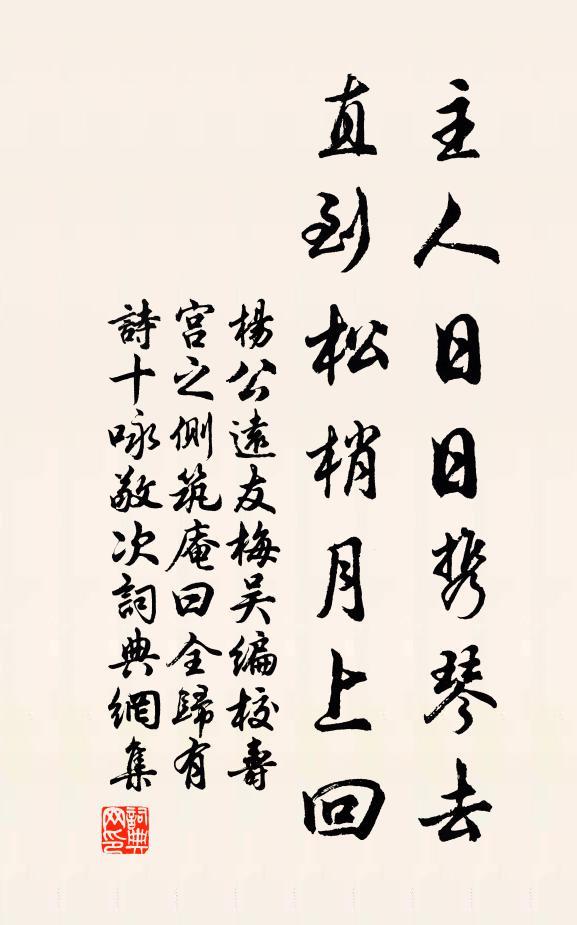 主人日日携琴去
直到松梢月上回
楊公遠友梅吴編校壽
宫之側筑庵曰全歸有
詩十咏敬次詞典網集
詞典網印